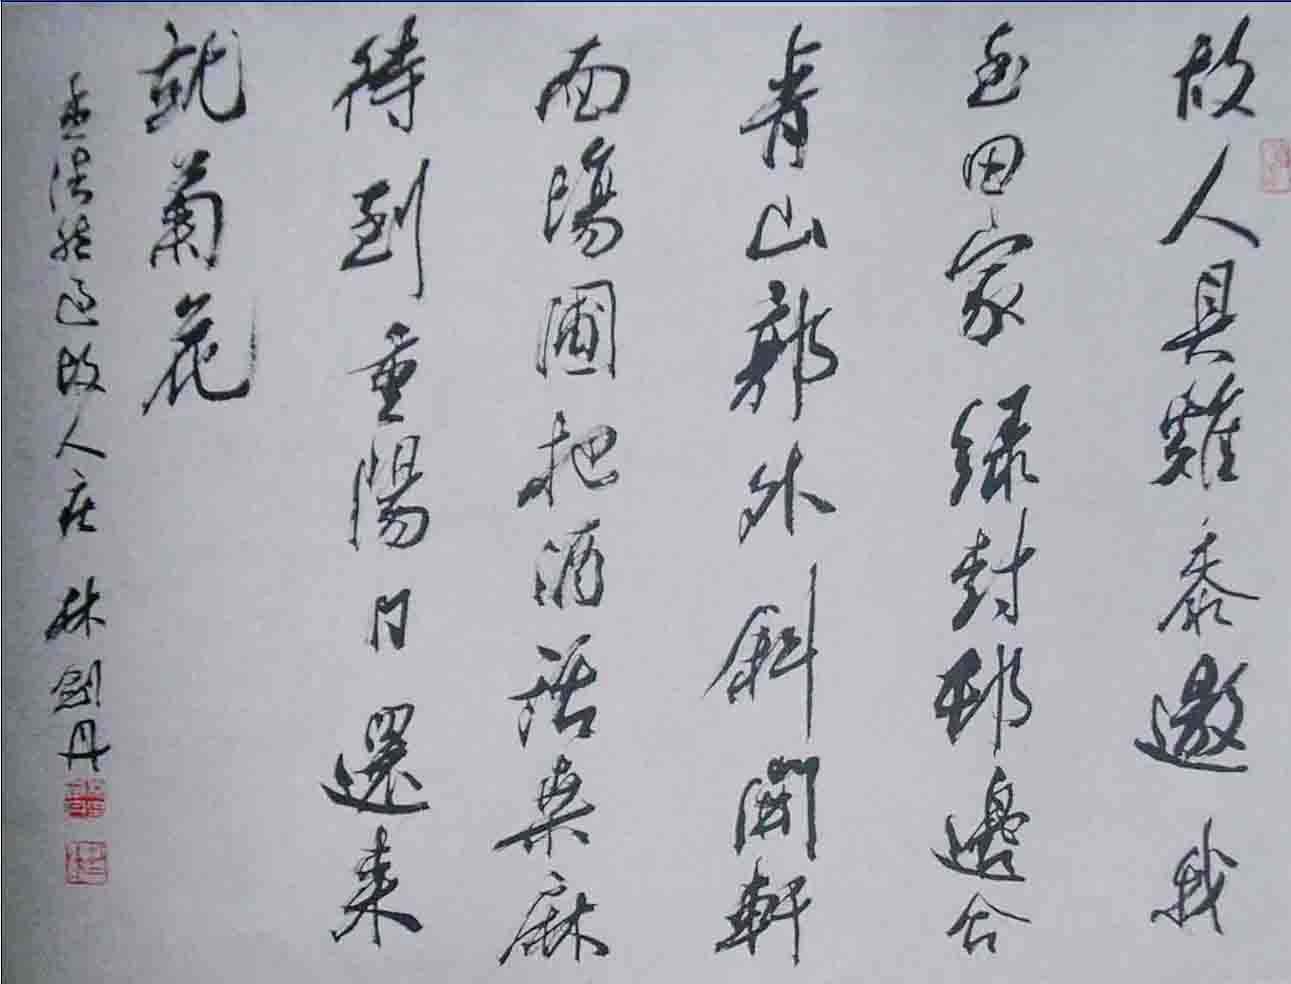 故人具雞黍邀我
至田家綠樹邨邊合
青山郭外斜開軒
面場圃把酒話桑麻
待到重陽日還來
就菊花
孟浩然過故人莊 林劍丹